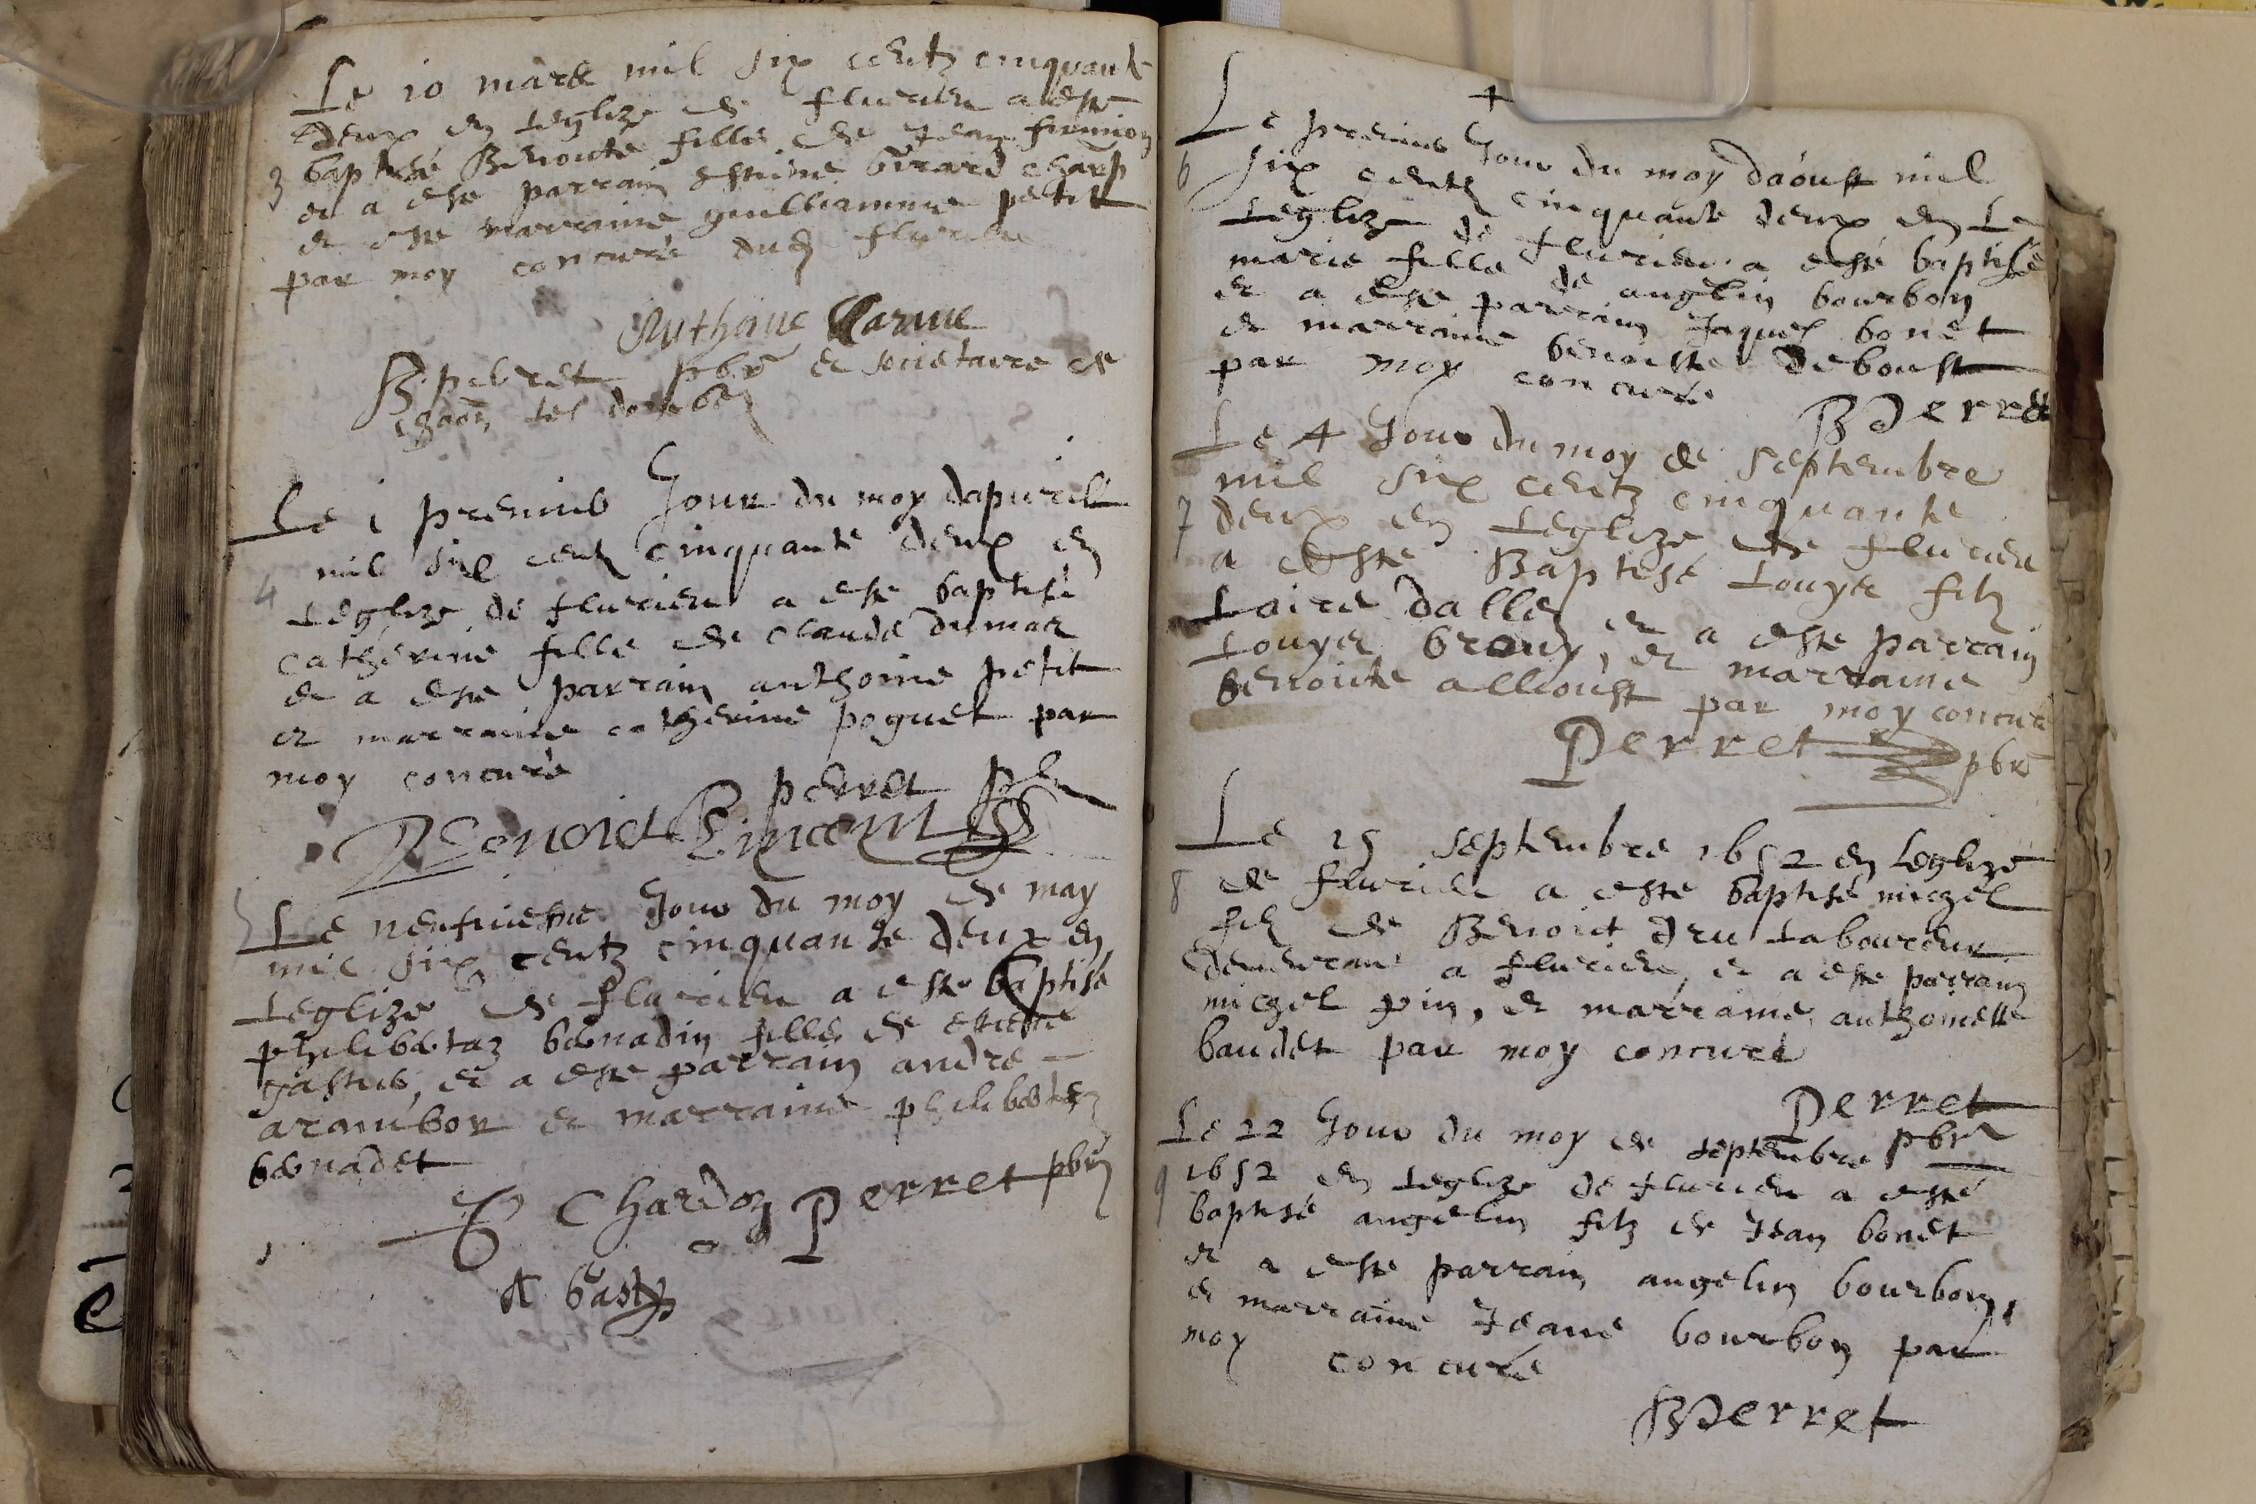 Le 10 mars mil six centz cinquante
deux en leglize de flurieu a este
baptisé Benoite fille de Jean
3
et a este parrain estiene Girard charp
et este marraine guilliaumme petit
par moy concuré dud flurieu
Anthoine Carme
B. perret pbr et societaire de
Le 1 premier Jour du moy dapvril
mil six centz cinquante deux en
4
leglize de flurieu a este baptisé
catherine fille de claude dumas
et a este parrain anthoine petit
et marraine catherine poguet par
moy concuré
perret pbr
Benoict Vincent
5
Le neufviesme Jour du moy de may
mil six centz cinquante deux en
leglize de flurieu a este baptisé
philibertaz bernadin fille de estiene
et a este parrain andre
et marraine philiberte
bernadet
E Chardon Perret pbr
A basty
+
Le premier Jour du moy daoust mil
6
six centz cinquante deux en Le
leglize de flurieu a esté baptisé
marie fille de angelin bourbon
et a este parrain Jaques bonet
et marraine benoiste deboust
par moy concuré
B Perret
Le 4 Jour du moy de septembre
mil six centz cinquante
7
deux en leglize de flurieu
a este Baptisé Louys filz
et a este parrain
Louys et marraine
benoite allioust par moy concuré
Perret pbr
Le 15 septembre 1652 en leglize
8
de flurieu a este baptisé michel
filz de Benoict dru laboureur
demeurant a flurieu, et a este parrain
michel pin, et marraine anthoineste
baudet par moy concuré
Perret
pbr
Le 22 Jour du moy de septembre
9
1652 en leglize de flurieu a esté
baptisé angelin filz de Jean bonet
et a este parrain angelin bourbon,
et marraine Jeane bourbon par
moy concuré
B Perret